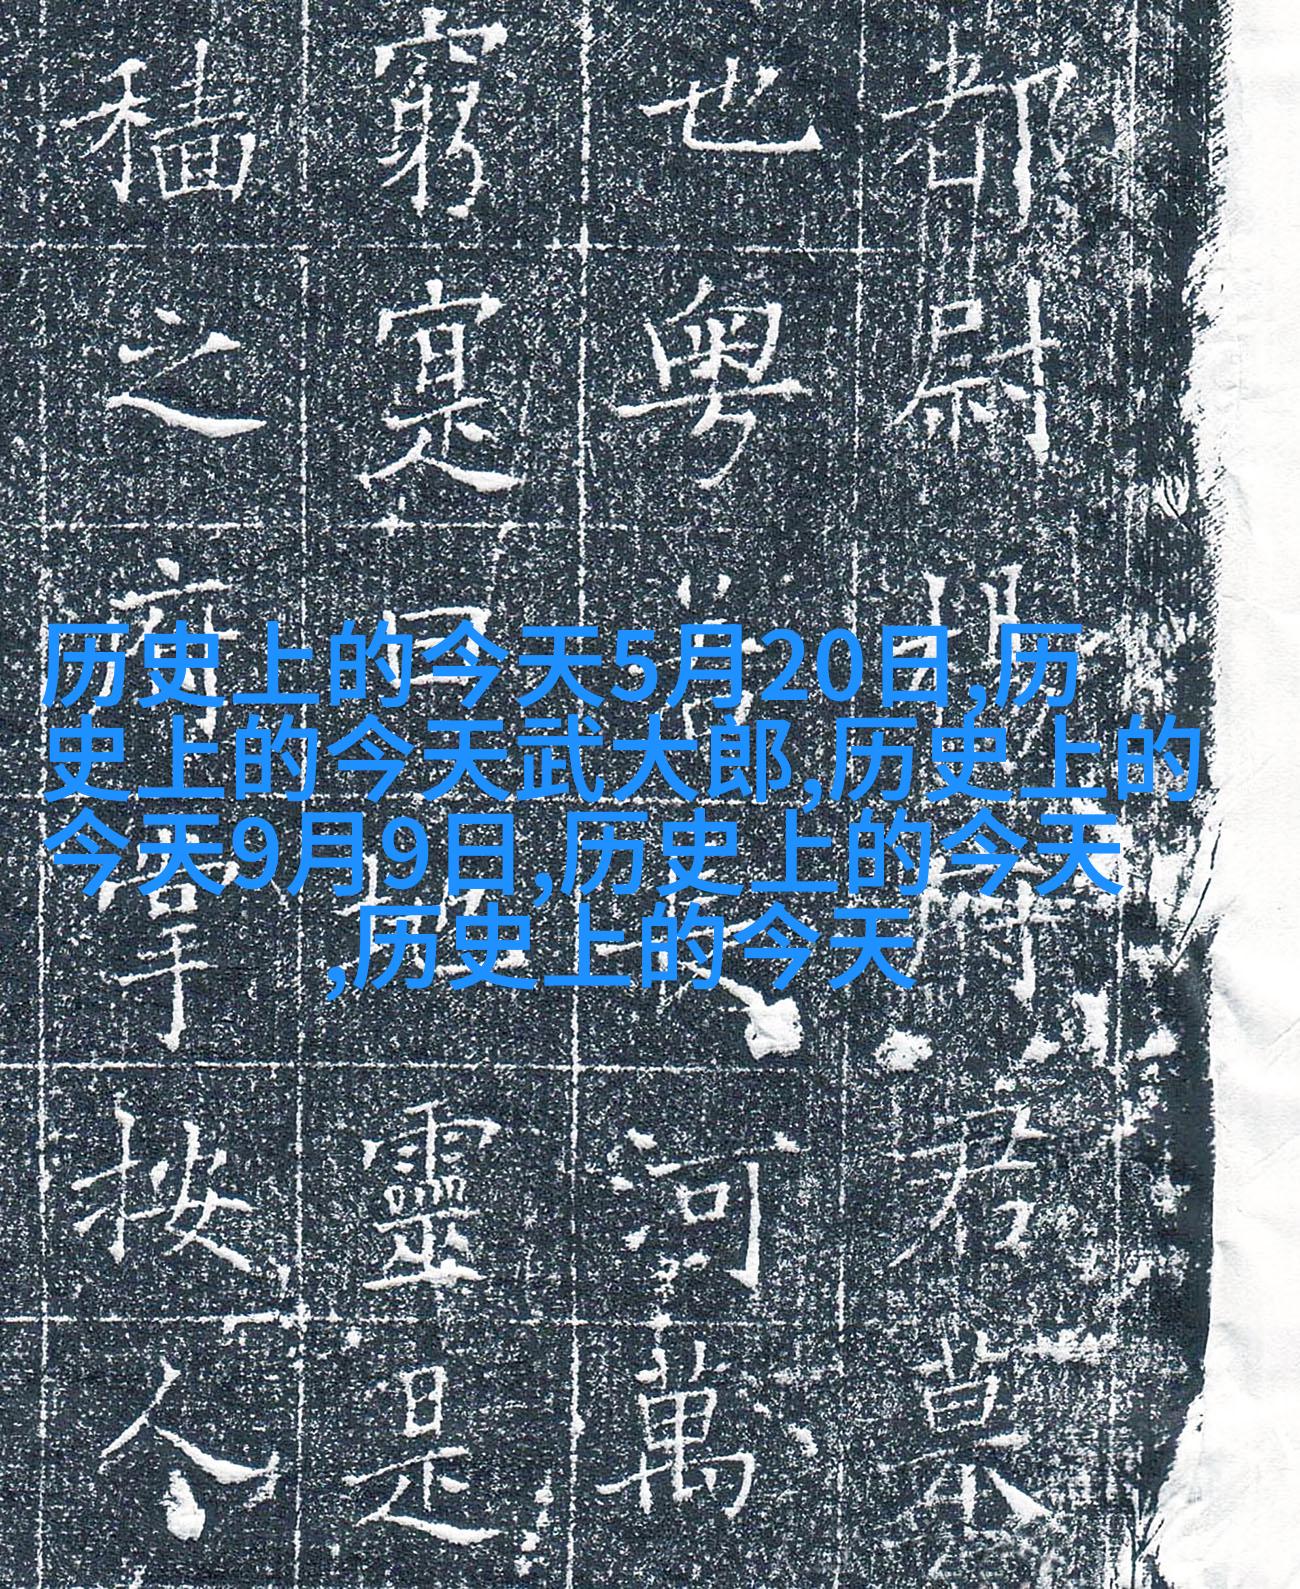 历史上的今天5月20日,历
史上的今天武大郎,历史上的
今天9月9日,历史上的今天
,历史上的今天
都尉楊府君景
也粤若河萬
窮寔曰靈是
穡之府單按人